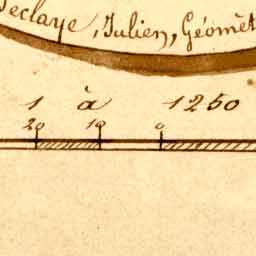 Declaye, Julien, Géomèt
1 à 1250
20 10 0